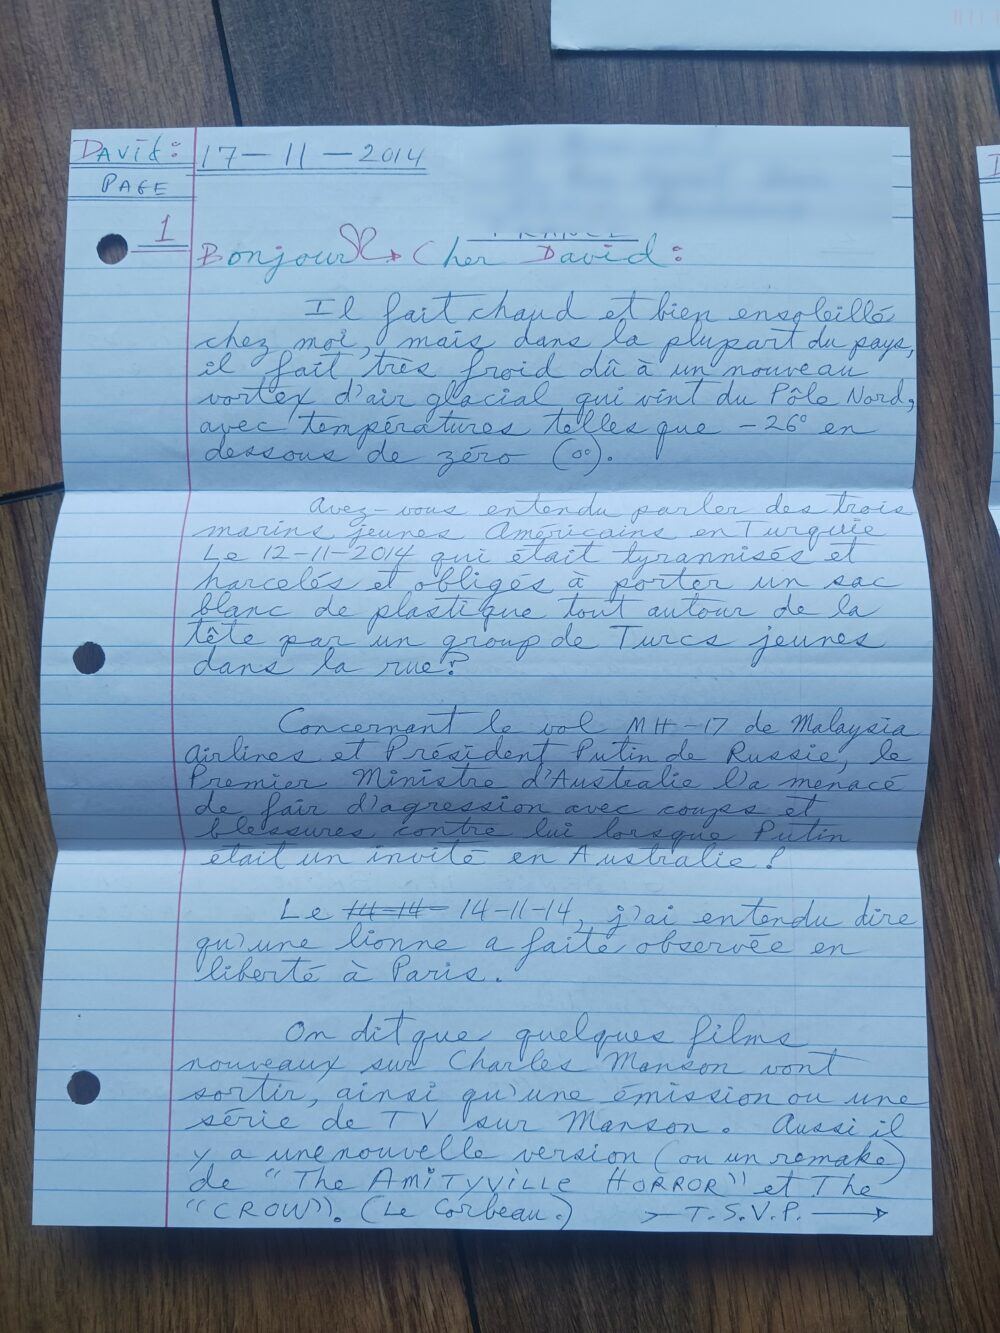 DAVid: 17-11-2014
PAGE
1
FRANCE
Bonjour Cher David:
Il fait chaud et bien ensoleillé
chez moi, mais dans la plupart du pays,
il fait très froid dû à un nouveau
vortex d'air glacial qui vint du Pôle Nord,
avec températures telles que -26° en
dessous de zéro (0°).
Avez-vous entendu parler des trois
marins jeunes Américains en Turquie
Le 12-11-2014 qui était tyrannisés et
harcelés et obligés à porter un sac
blanc de plastique tout autour de la
tête par un group de Turcs jeunes
dans la rue?
Concernant le vol MH-17 de Malaysia
Airlines et Président Putin de Russie, le
Premier Ministre d'Australie l'a menacé
de fair d'agression avec coups et
blessures contre lui lorsque Putin
était un invité en Australie!
Le 14-14- 14-11-14, j'ai entendu dire
qu'une lionne a faité observée en
liberté à Paris.
On dit que quelques films
nouveaux sur Charles Manson vont
sortir, ainsi qu'une émission ou une
série de TV sur Manson. Aussi il
y a une nouvelle version (ou un remake)
de "The AMiTYViLLE HORROR" et The
"CROW". (Le Corbeau.) >-T.S.V.P.→